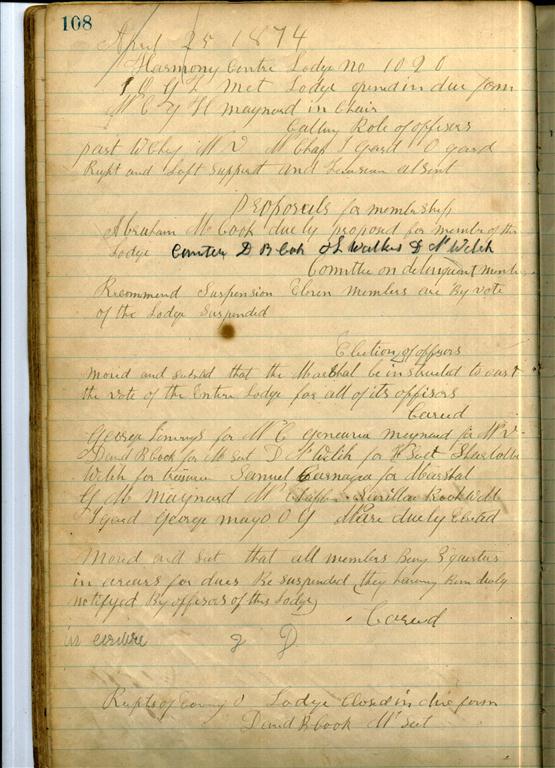 108
April 25 1874
Harmony Centre Lodge No 1090
I O G T Met Lodge opend in due form
W C Y H maynard in Chair
Calling Role of offisers
past W Chf W V W Chap I gard O gard
Right and Left Support and absent
Proposels for membership
Abraham M Cook duely propond for member of the
Lodge Comitee D B Cook J L Walker D N Welch
Comittee on delinquent membe
Recommend Suspension Eleven members are By vote
of the Lodge Suspended
Election of offisers
moved and that the Marshal be instructed to cast
the vote of the Entire Lodge for all of its offisers
Caried
George for W C maynard for W V
David B Cook for W Sect D N Welch for F Sect
Welch for Samuel for Marshal
Y H Maynard W Chap Rook W M
I gard George mayo O G Ware duely Elected
Moved and sect that all members Being 3 quarters
in arears for dues Be suspended (they having Bin duly
notifyed By offisers of this Lodge)
Caried
in
Ruptsof Evening 0 Lodge Closed in due form
David B Cook W Sect